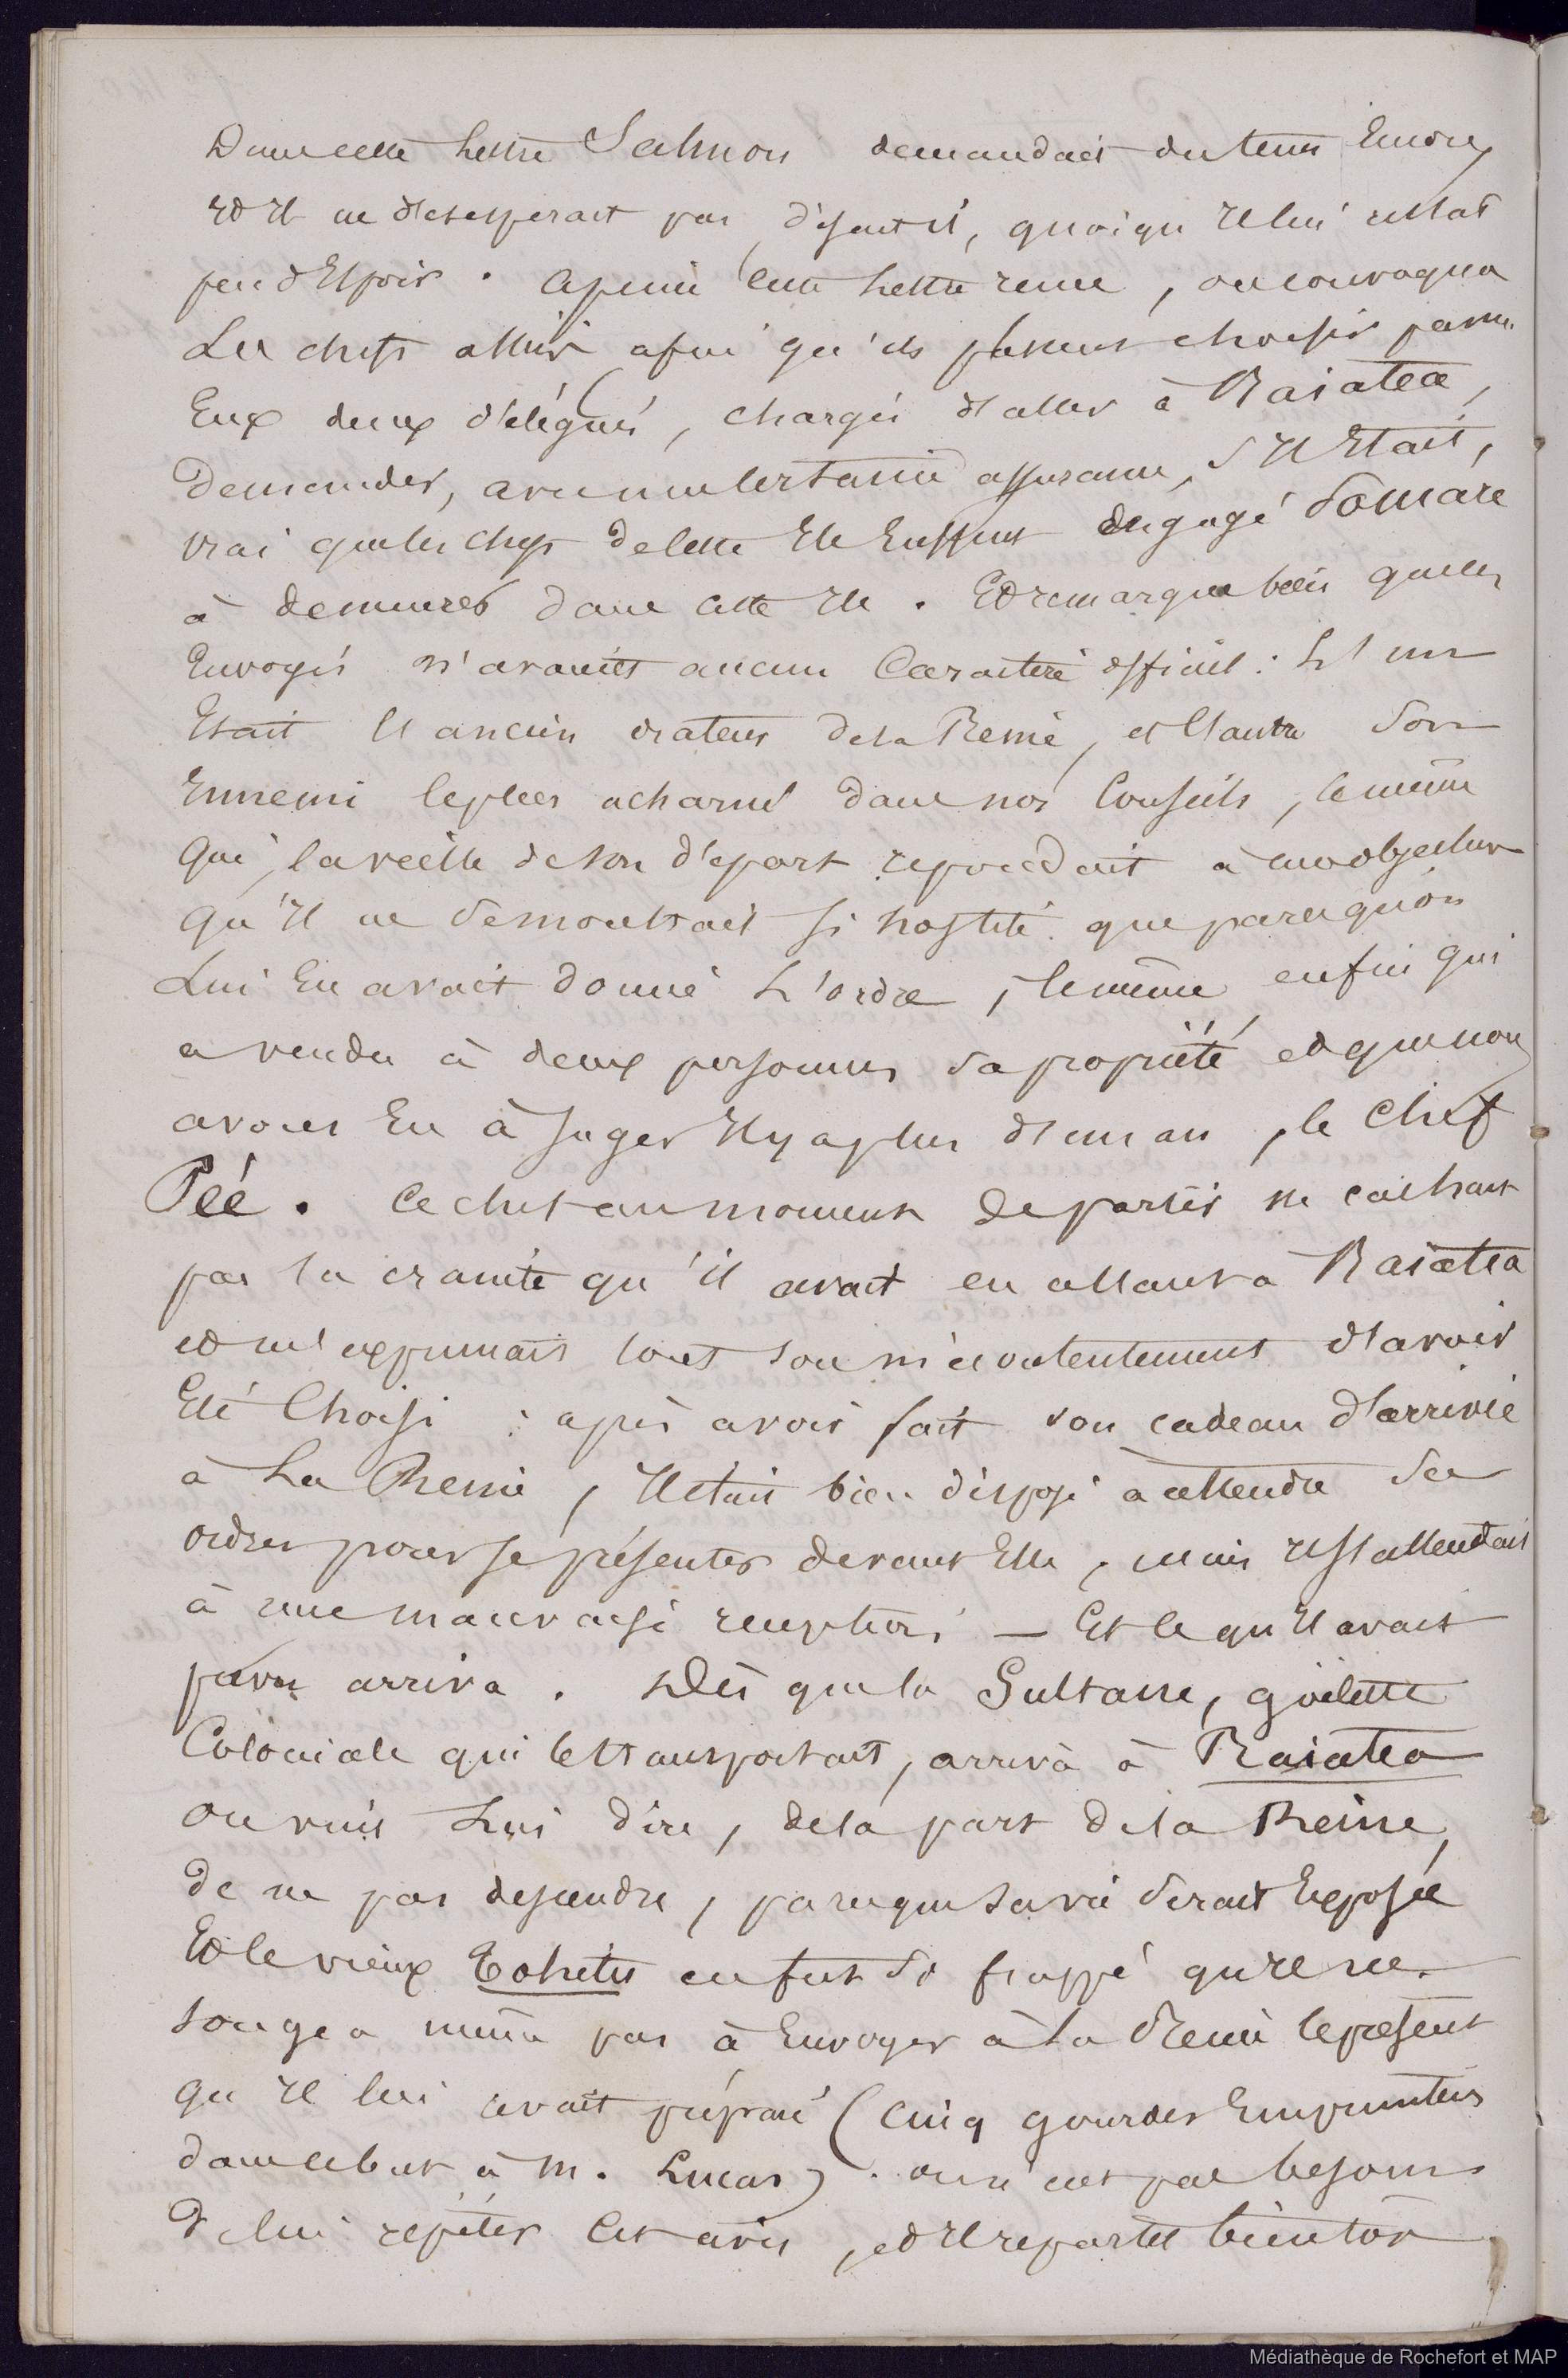 Dans cette Lettre Salmon demandait du tems Encore,
Et Il ne désespérait pas, disait il, quoiqu'Il lui restat
peu d'Espoir. Apeine Cette Lettre reçue, on convoqua
Les chefs afin qu'ils pussent choisir parmi
Eux deux délégués, chargés d'aller à Raiatea,
Demander, avec une Certaine assurance, s'Il Etait,
vrai que les Chefs de Cette Ile Eussent engagé Pomare
à demeurer dans Cette Ile. Et remarquez bien que les
Envoyés n'avaient aucun Caractère officiel: L'un
Etait l'ancien orateur de la Reine, et l'autre Son
Ennemi le plus acharné dans nos Conseils, le même
Qui, la veille de son départ répondait à
Qu'Il ne se montrait si hostile que parcequ'on
Lui En avait donné L'ordre, le même enfin qui
a vendu à deux personnes sa propriété et que nous
avons Eu à Juger Il y a plus d'un an, le Chef
Péé. Ce chef au moment de partir ne cachait
pas la crainte qu'il avait en allant à Raiatea
et m'exprimait tout son mécontentement d'avoir
Eté Choisi: après avoir fait son cadeau d'arrivée
à La Reine, Il était bien disposé à attendre Ses
ordres pour se présenter devant Elle, mais Il s'attendait
à une mauvaise reception — Et Ce qu'Il avait
prévu arriva. Dès que la Sultane, goëlette
Coloniale qui le transportait, arriva à Raiatea
on vint Lui dire, de la part de la Reine,
de ne pas descendre, parceque sa vie serait Exposée
Et le vieux Tohitu en fut si frappé qu'Il ne
songea même pas à Envoyer à la Reine le présent
qu'Il lui avait préparé (Cinq gourdes Empruntées
dans ce but à M. Lucas). on n'eut pas besoin
De lui répéter Cet avis, et Il repartit bientôt
Médiathèque de Rochefort et MAP